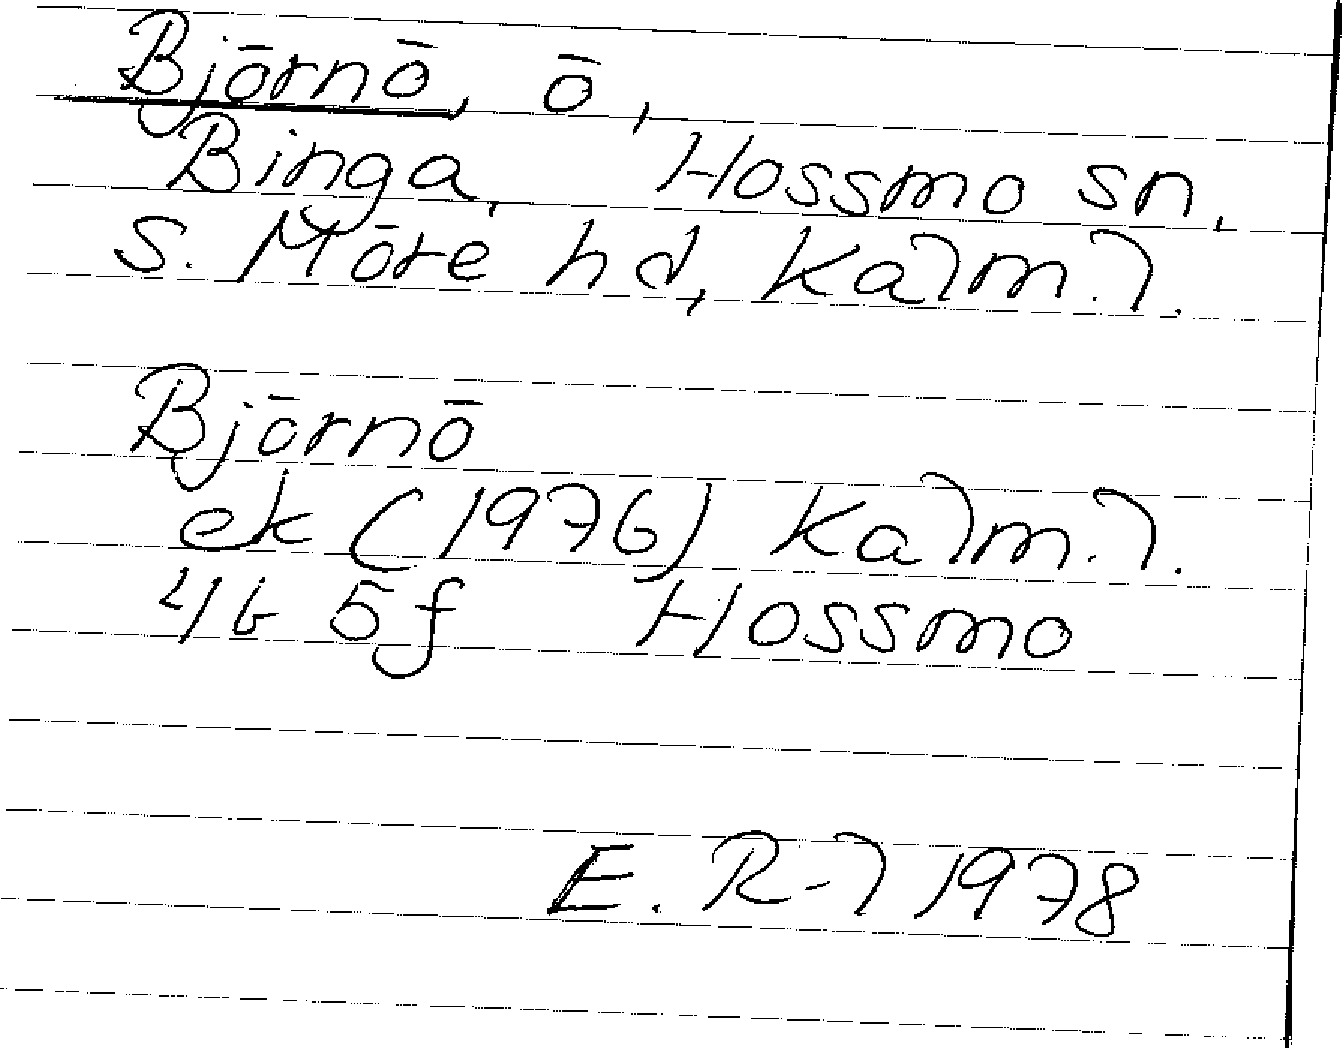 Björnö, ö,
Binga, Hossmo sn,
S. Möre hd, Kalm. l.
Björnö
ek (1976) Kalm. l.
4G 5f Hossmo
E. R-l 1978